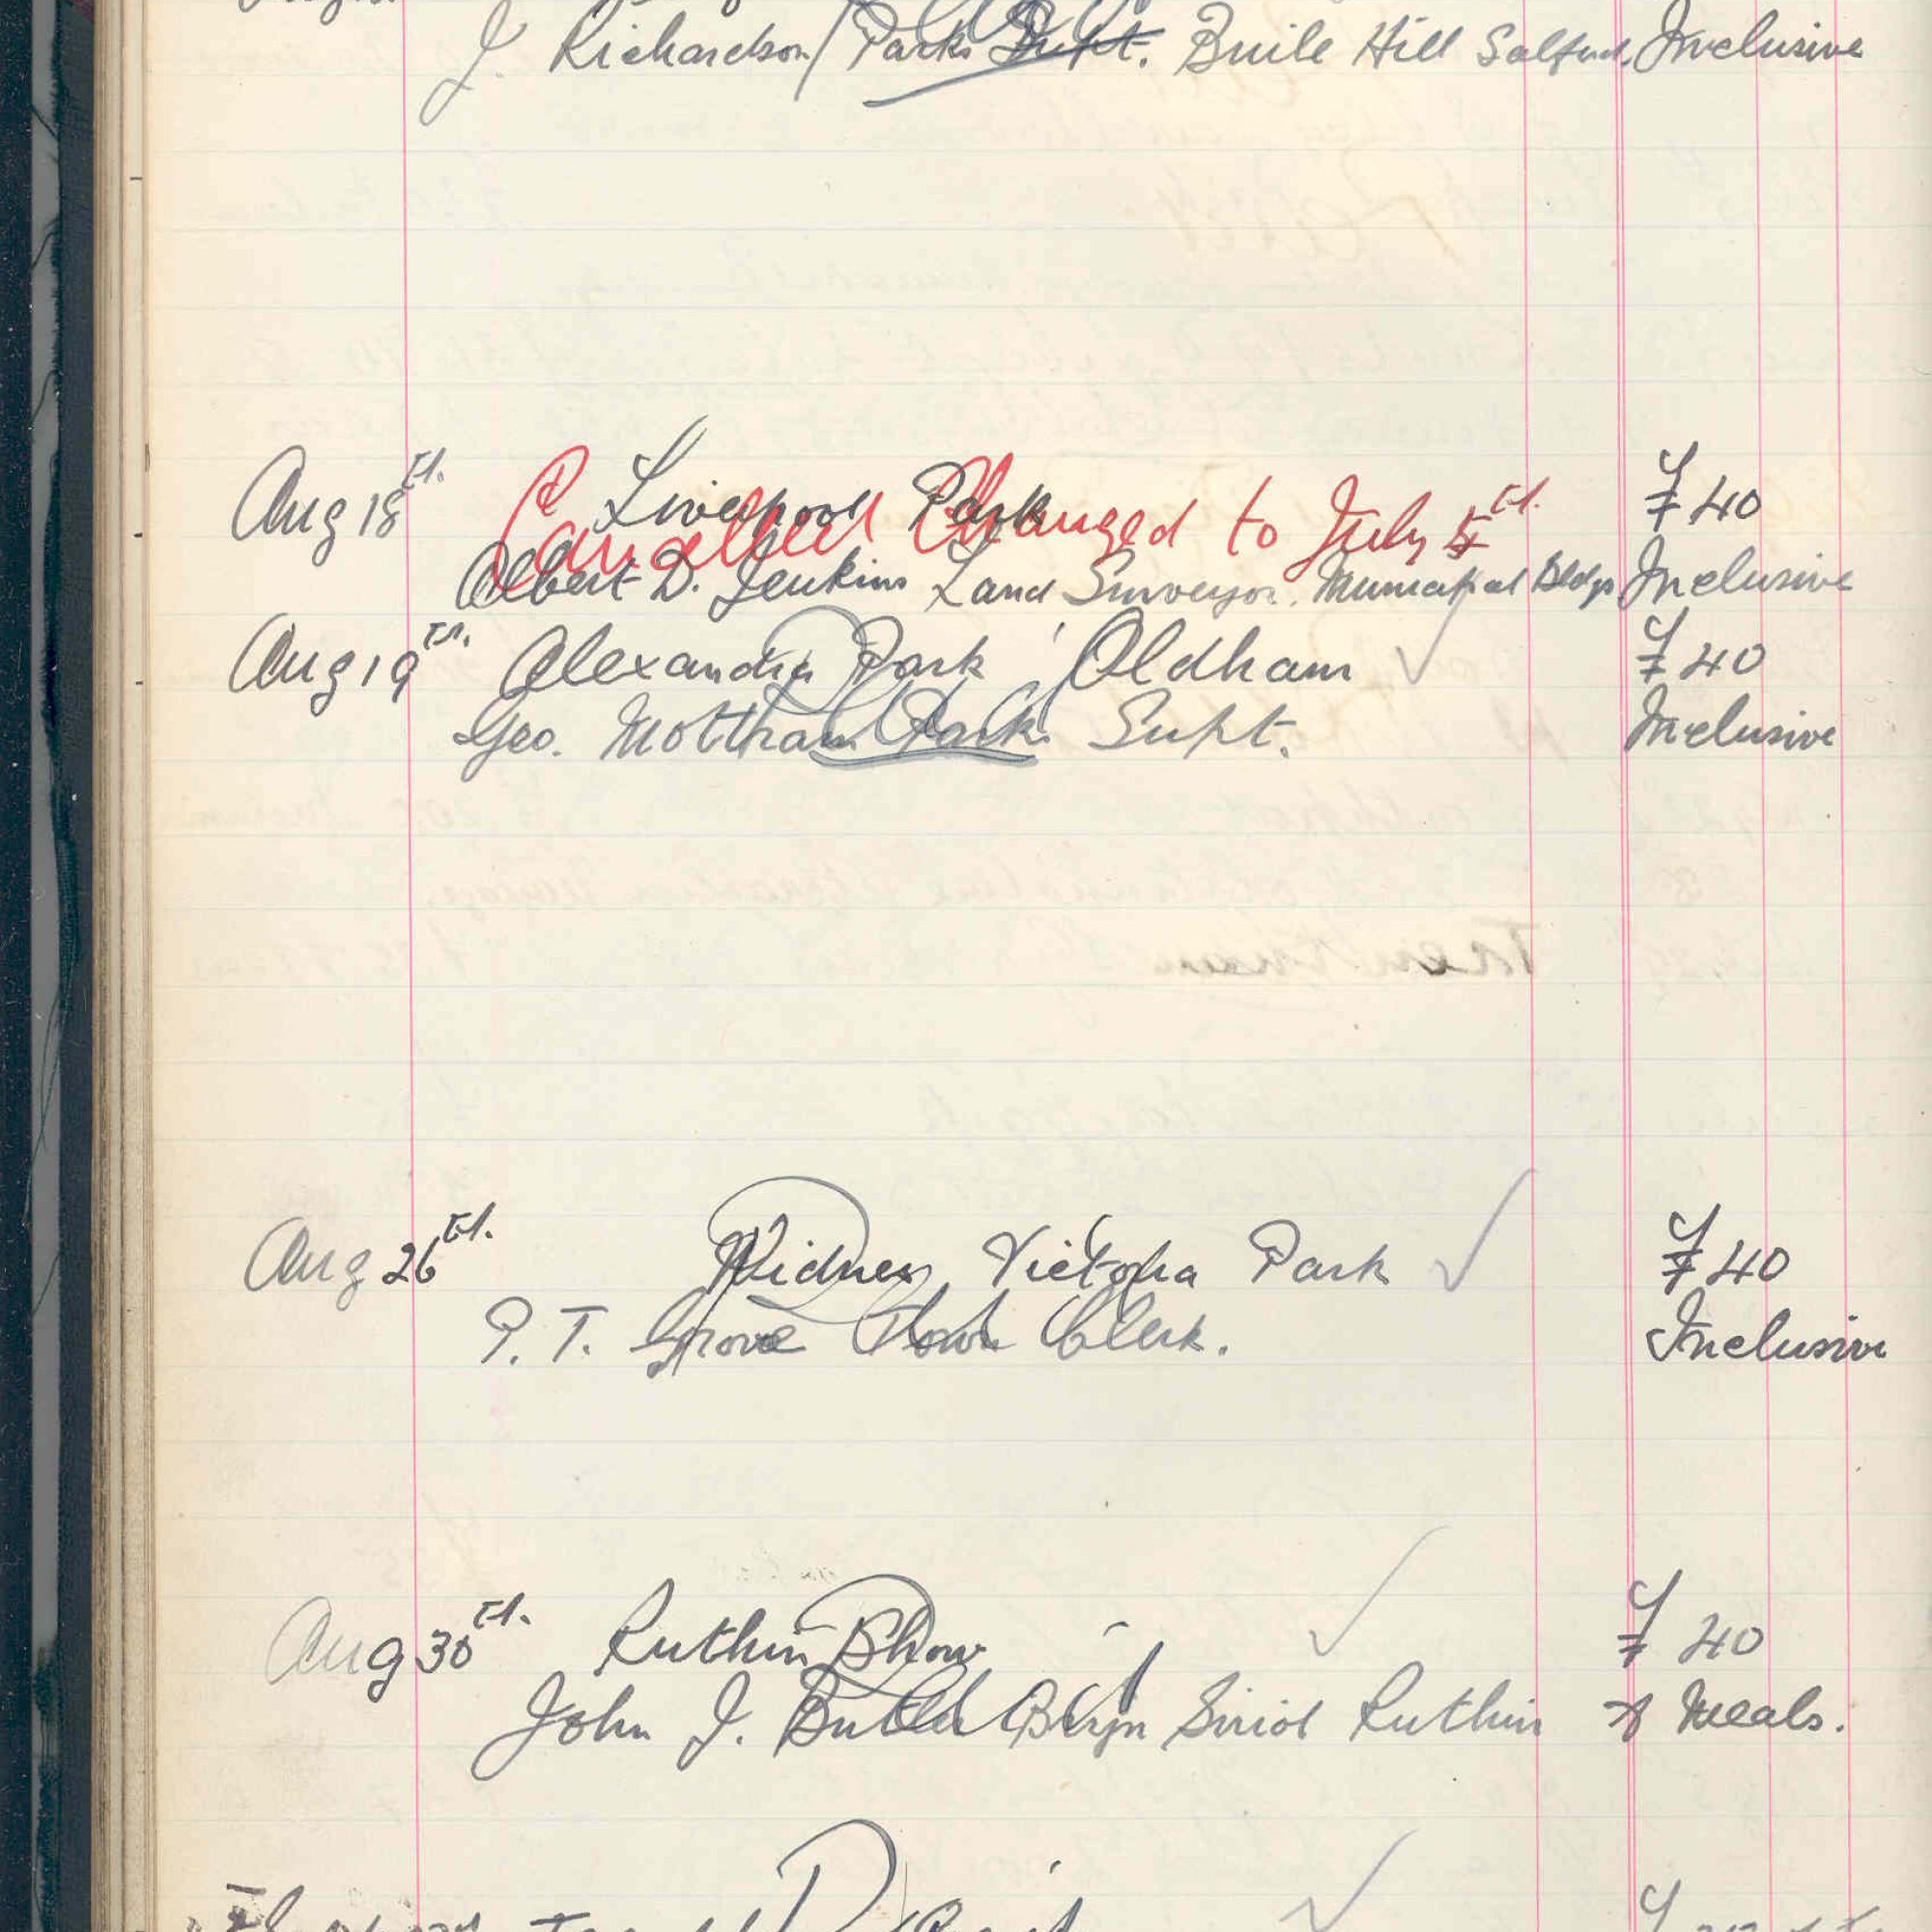 J. Richardson / Parks Supt. Buile Hill Salford. Inclusive
Aug 18th. Liverpool Park £40
Cancelled Changed to July 5th.
Albert D. Jenkins Land Surveyor. Municipal Bldgs Inclusive
Aug 19th. Alexandra Park Oldham ✓ £40
Geo. Mottram Park Supt. Inclusive
Aug 26th. Widnes, Victoria Park ✓ £40
P. T. Grove Town Clerk. Inclusive
Aug 30th. Ruthin Show ✓ £40
John J. Butler Bryn Siriol Ruthin & Meals.